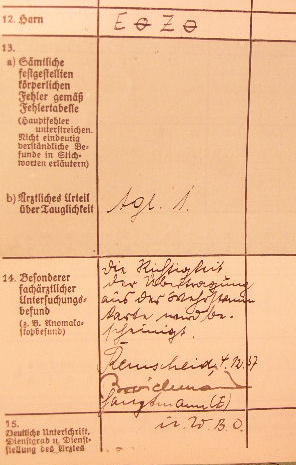 12. Harn
E ⌀ Z ⌀
13.
a) Sämtliche
festgestellten
körperlichen
Fehler gemäß
Fehlertabelle
(Hauptfehler
unterstreichen.
Nicht eindeutig
verständliche Be-
funde in Stich-
worten erläutern)
b) Ärztliches Urteil
über Tauglichkeit
tgl. 1.
14. Besonderer
fachärztlicher
Untersuchungs-
befund
(z. B. Anomalo-
skopbefund)
Die Richtigkeit
der Übertragung
aus der Wehrstamm
karte wird be-
scheinigt.
Remscheid, 4.
37
Hauptmann (E)
u. W. B. O.
15.
Deutliche Unterschrift,
Dienstgrad u. Dienst-
stellung des Arztes